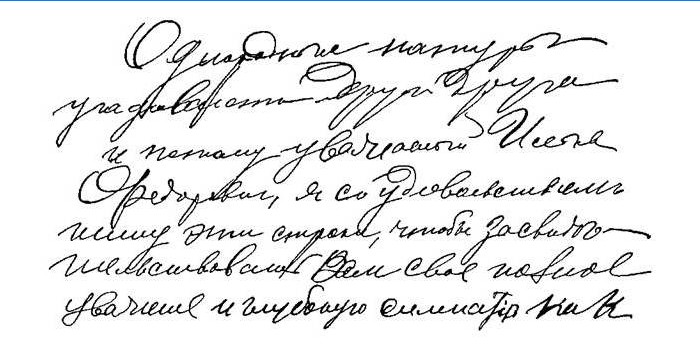 Однородные натуры
угадывают друг друга
и потому уважаемый Илья
Федорович, я со удовольствием
пишу эти строки, чтобы засвидѣ-
тельствовать Вам свое полное
уважение и глубокую симпатію как